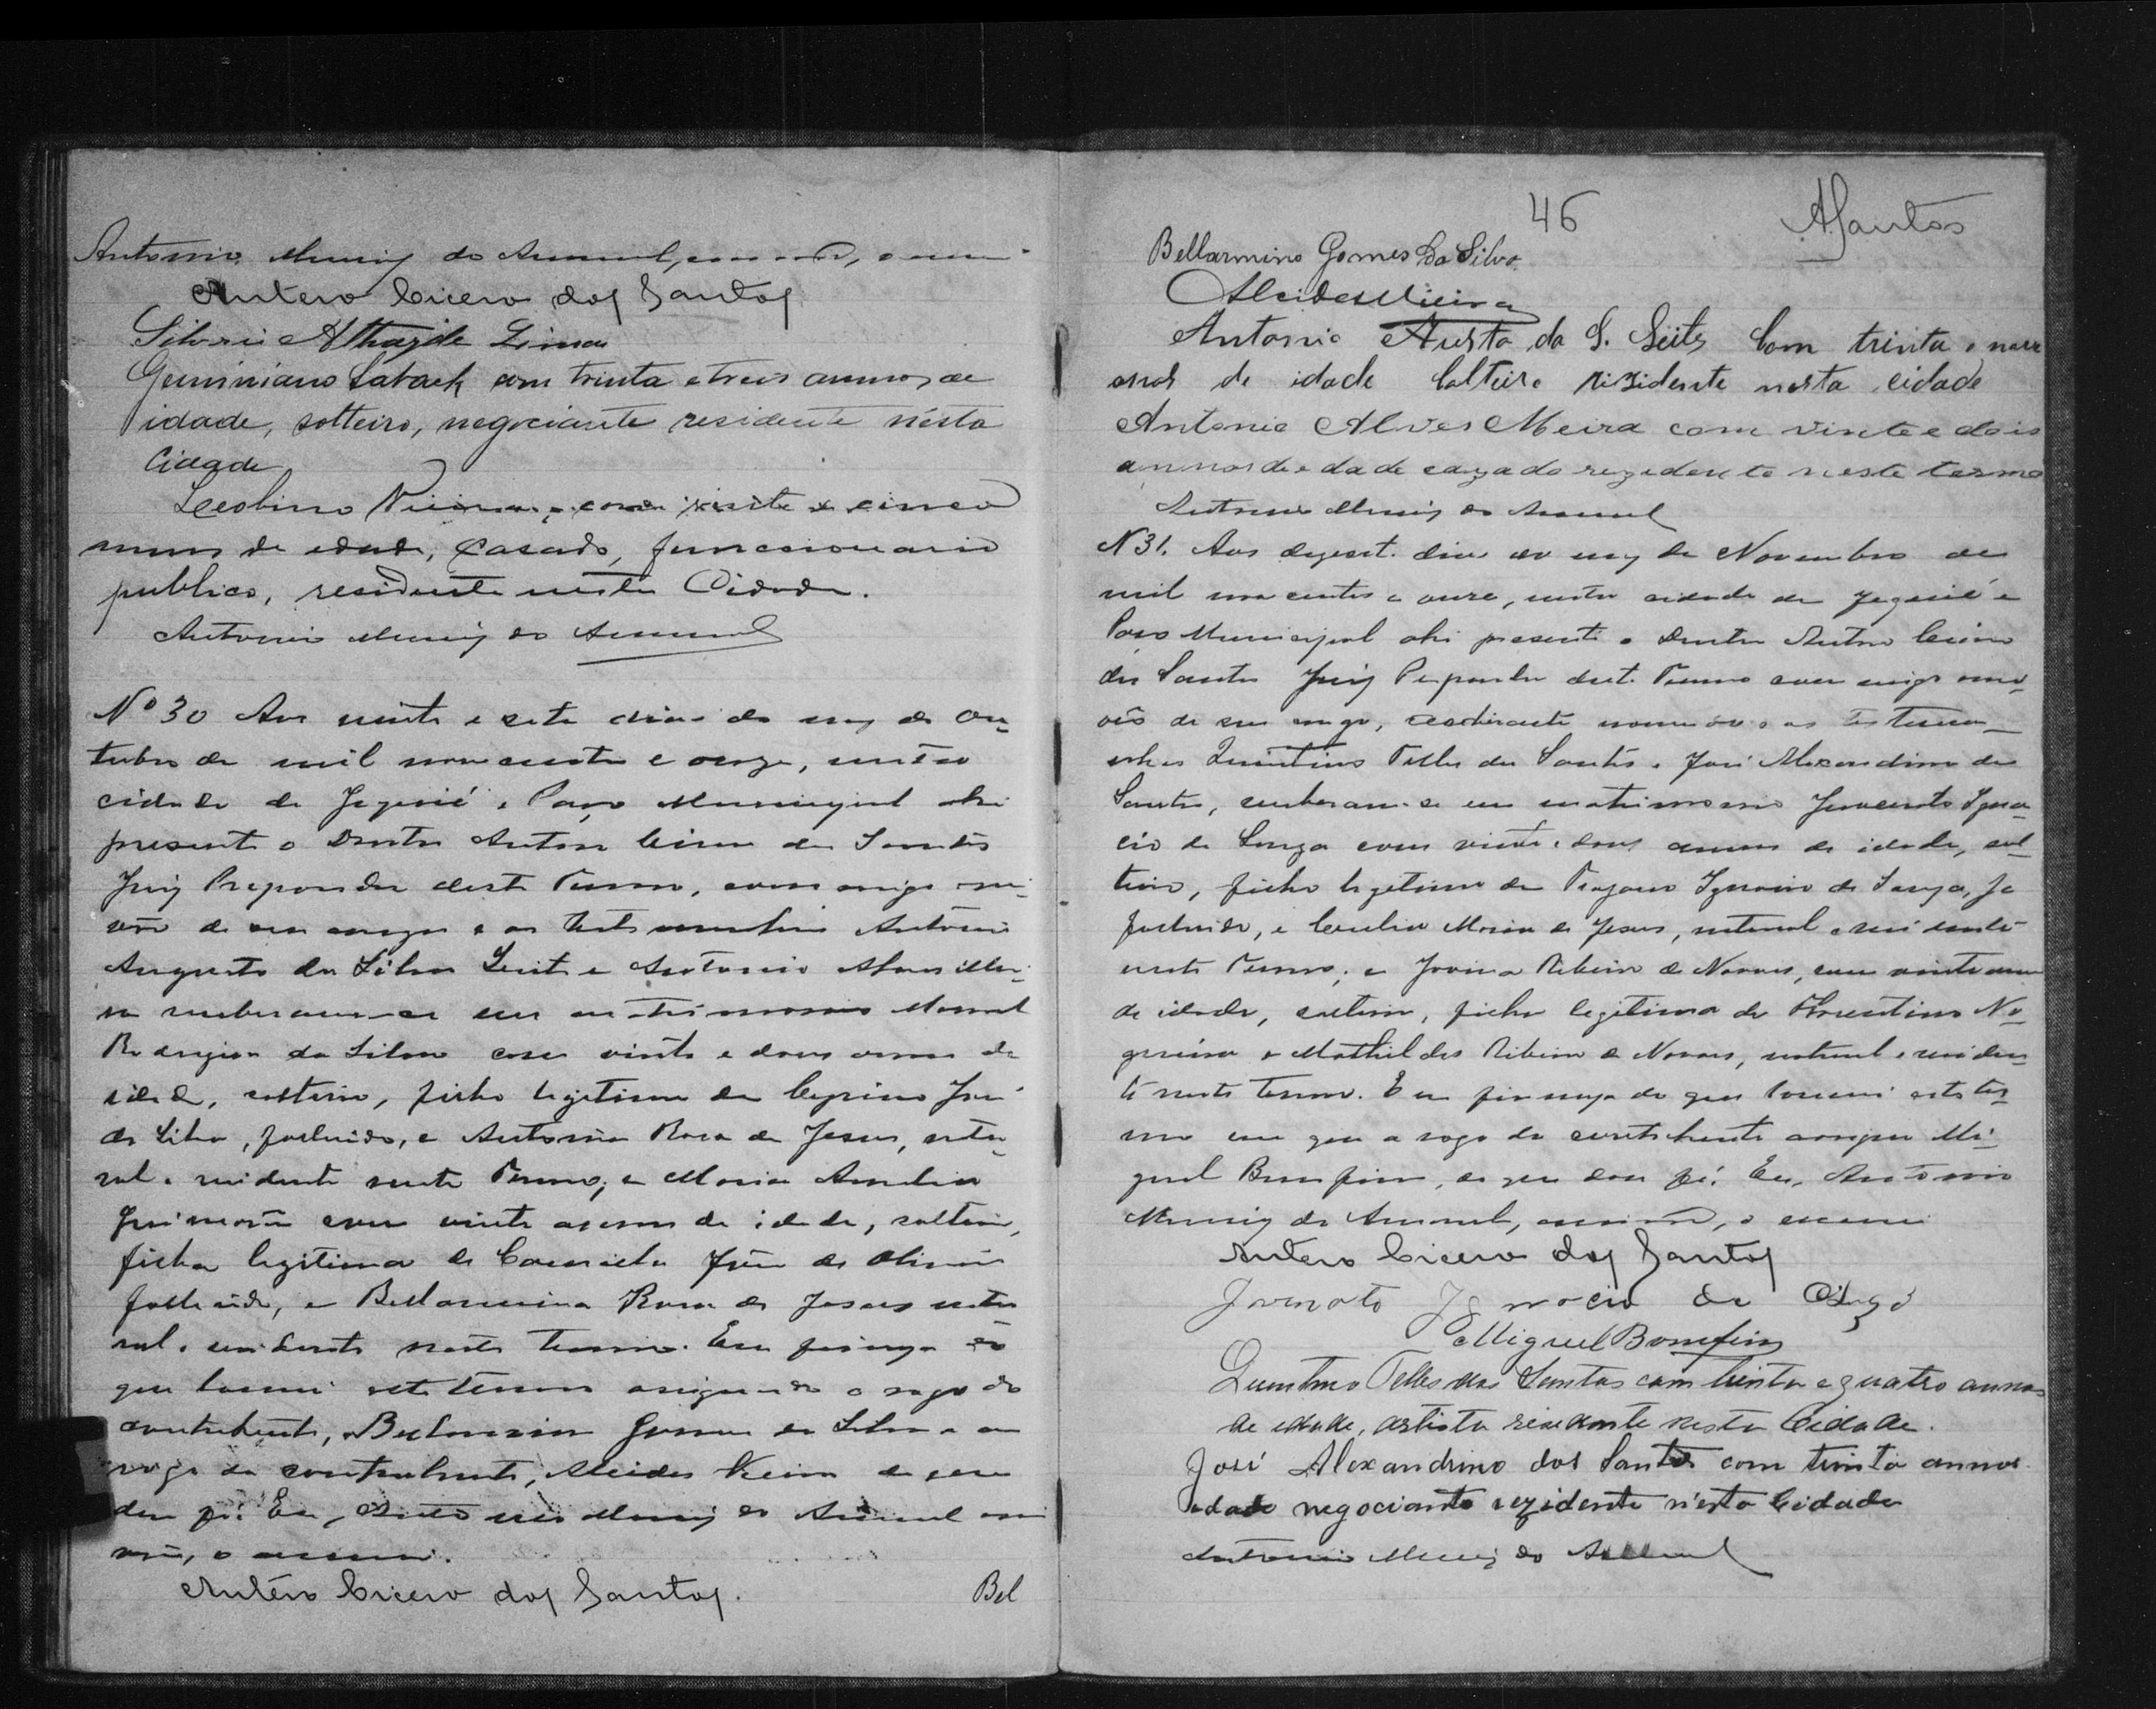 Antonio Muniz do Amaral, escrivão, o escrevi
Antero Cicero dos Santos
Silverio Athayde Lima
Geminiano Saback com trinta e treis annos de
idade, solteiro, negociante residente nésta
Cidade
Leolino Vieira, com vinte e cinco
annos de edade, Casado, funccionario
publico, residente nesta Cidade.
Antonio Muniz do Amaral
Nº 30 Aos vinte e sete dias do mez de Ou-
tubro de mil nove centos e onze, nesta
cidade de Jequié e Paço Municipal ahi
presente o Doutor Antero Cicero dos Santos
Juiz Preparador deste Termo, commigo escri-
vão de seu cargo e as testemunhas Antonio
Augusto da Silva Leite e Antonio Alves Mei-
ra receberam-se em matrimonio Manoel
Rodrigues da Silva com vinte e dous annos de
idade, solteiro, filho legitimo de Cyprino José
da Silva, fallecido, e Antonia Rosa de Jesus, natu-
ral e residente neste Termo; e Maria Amelia
com vinte annos de idade, solteira,
filha legitima de José de Oliveira
fallecido, e Bellarmina Rosa de Jesus natu
ral e residente neste termo. Em firmeza do
que lavrei este termo assignando a rogo do
contrahente, Belarmino Gomes da Silva e a
rogo da contrahente, Alcides Vieira do que
dou fé. Eu, Antonio Muniz do Amaral escri
vão, o escrevi.
Antéro Cicero dos Santos.
Bel
46
ASantos
Bellarmino Gomes Da Silva
Alcides Vieira
Antonio Austo da S. Leite Com trinta e nove
anos de idade Solteiro rizidente nesta cidade
Antonio Alves Meira com vinte e dois
annos de edade cazado rezidente neste termo
Antonio Muniz do Amaral
N 31. Aos dezesete dias do mez de Novembro de
mil nove centos e onze, nesta cidade de Jequié e
Paço Municipal ahi presente o Doutor Antero Cicero
dos Santos Juiz Preparador deste Termo commigo escri-
vão de seu cargo, nomeado e as testemu-
nhas Quintino Telles dos Santos e José Alexandrino dos
Santos, receberam-se em matrimonio Innocente Igna-
cio de Souza com vinte e dous annos de idade, sol-
teiro, filho legitimo de Ignacio de Souza, ja
fallecido, e Maria de Jesus, natural e residente
neste Termo; e Jovina Ribeiro de Novaes, com vinte annos
de idade, solteira, filha legitima de Florentino No-
gueira e Mathildes Ribeiro de Novaes, natural e residen
te neste termo. E em firmeza do que lavrei este ter-
mo em que a rogo da contrahente assigna Mi-
guel Bomfim, do que dou fé. Eu, Antonio
Muniz do Amaral, escrivão, o escrevi
Antero Cicero dos Santos
Ignacio de
Miguel Bomfim
Quintino Telles dos Santos com trinta e quatro annos
de edade, artista residente nesta Cidade.
José Alexandrino dos Santos com trinta annos
edade negociante rezidente n'esta Cidade
Antonio Muniz do Amaral